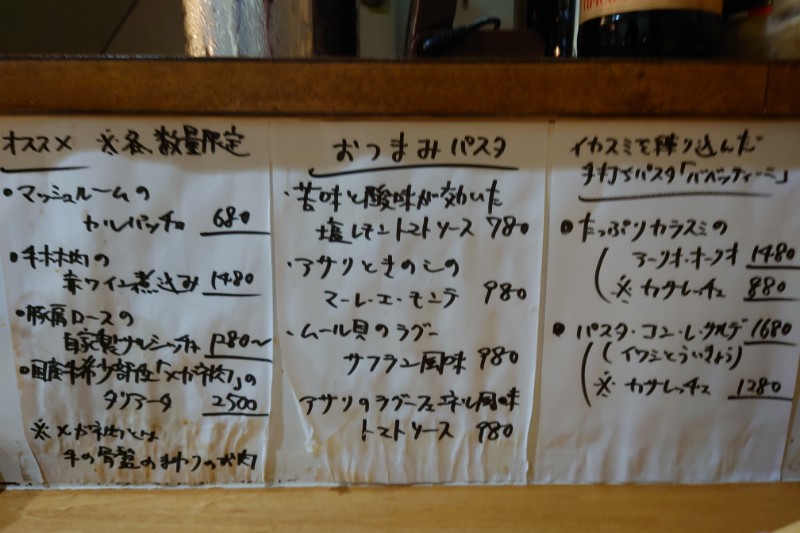 オススメ ※各数量限定
・マッシュルームの
カルパッチョ 680
・牛ホホ肉の
赤ワイン煮込み 1480
・豚肩ロースの
自家製サルシッチャ 1280〜
・国産牛希少部位「メガネ肉」の
タリアータ 2500
※メガネ肉とは
牛の骨盤のまわりのお肉
おつまみパスタ
・苦味と酸味が効いた
塩レモントマトソース 980
・アサリときのこの
マーレ・エ・モンテ 980
・ムール貝のラグー
サフラン風味 980
アサリのラグーフェネル風味
トマトソース 980
イカスミを練り込んだ
手打ちパスタ「ババッティーニ」
・たっぷりカラスミの
アーリオ・オーリオ 1480
(※カサレッチェ 880
・パスタ・コン・レ・サルデ 1680
(イワシとういきょう)
※カサレッチェ 1280